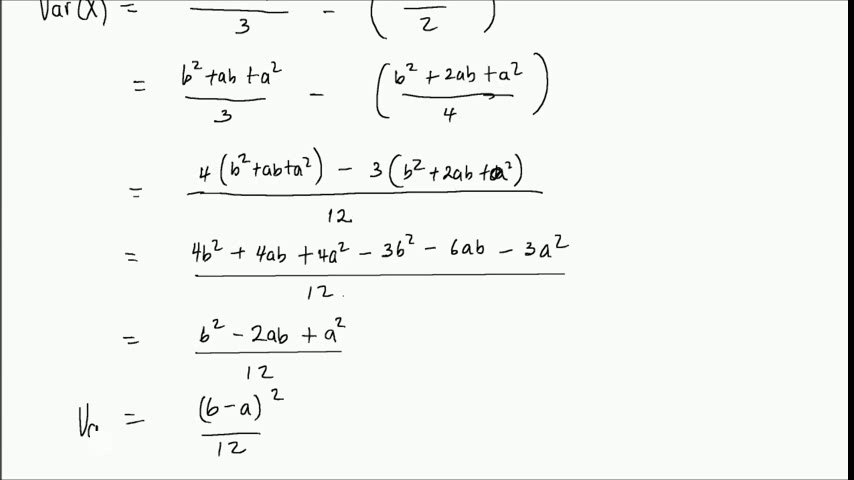 Var(X) = ― / 3 - ( ― / 2 )
= (b² + ab + a²) / 3 - ( (b² + 2ab + a²) / 4 )
= (4(b² + ab + a²) - 3(b² + 2ab + a²)) / 12
= (4b² + 4ab + 4a² - 3b² - 6ab - 3a²) / 12
= (b² - 2ab + a²) / 12
= (b - a)² / 12